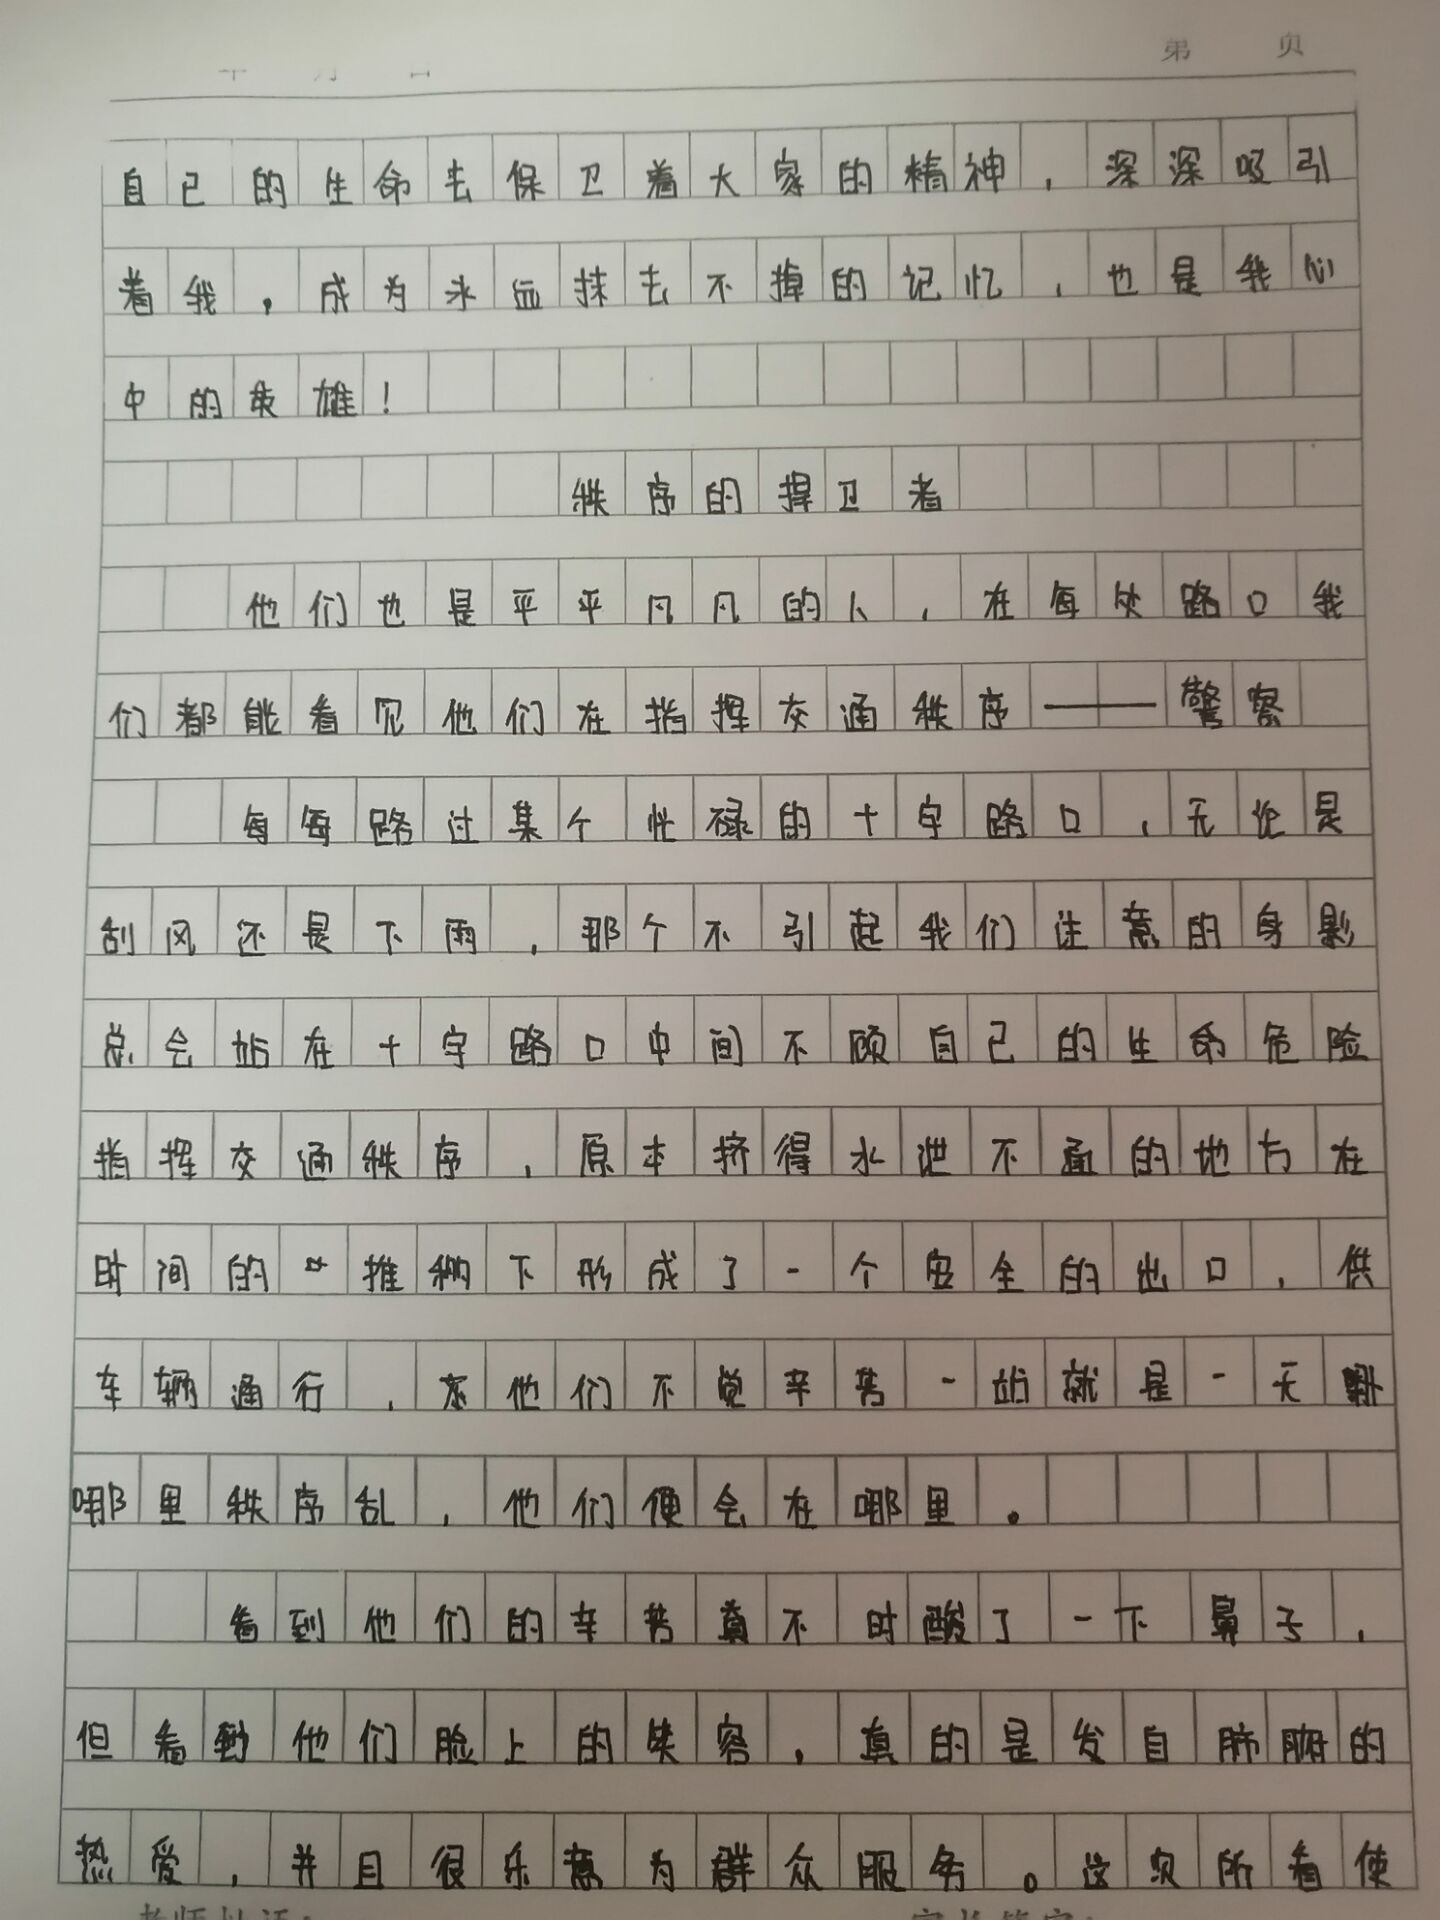 第 页
自己的生命去保卫着大家的精神，深深吸引
着我，成为永远抹去不掉的记忆，也是我心
中的英雄！
秩序的捍卫者
他们也是平平凡凡的人，在每处路口我
们都能看见他们在指挥交通秩序——警察
每每路过某个忙碌的十字路口，无论是
刮风还是下雨，那个不引起我们注意的身影
总会站在十字路口中间不顾自己的生命危险
指挥交通秩序，原本挤得水泄不通的地方在
时间的推移下形成了一个安全的出口，供
车辆通行，在他们不觉辛苦一站就是一天
哪里秩序乱，他们便会在哪里。
看到他们的辛苦真不时酸了一下鼻子，
但看到他们脸上的笑容，真的是发自肺腑的
热爱，并且很乐意为群众服务。这次所看使